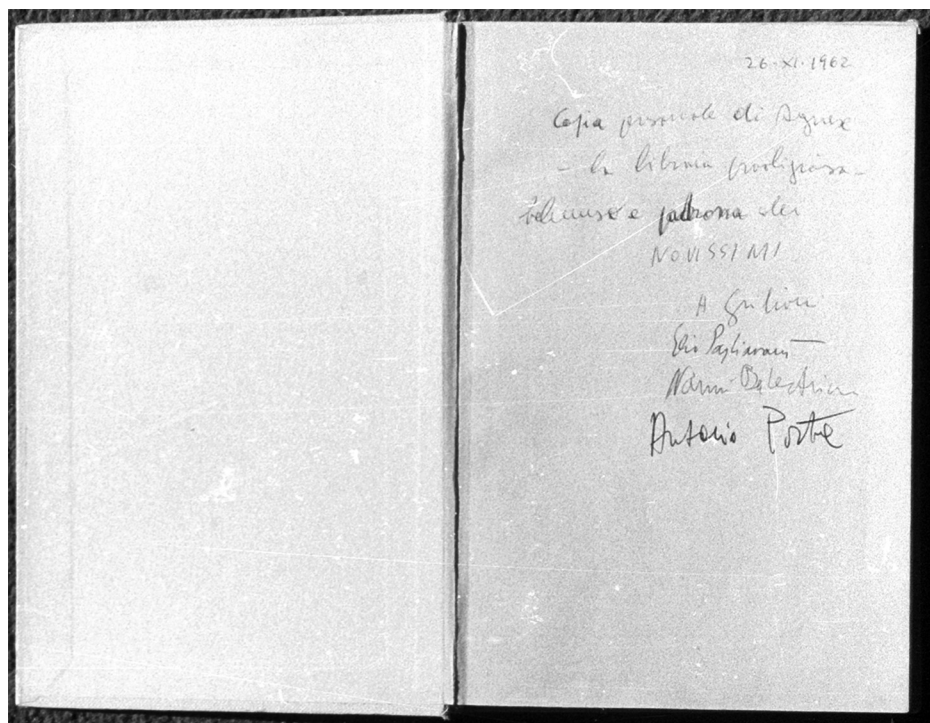 26·XI·1962
Copia personale di Agnese
– la libraia prodigiosa–
e patrona dei
NOVISSIMI
A Giuliani
Elio Pagliarani
Nanni Balestrini
Antonio Porta